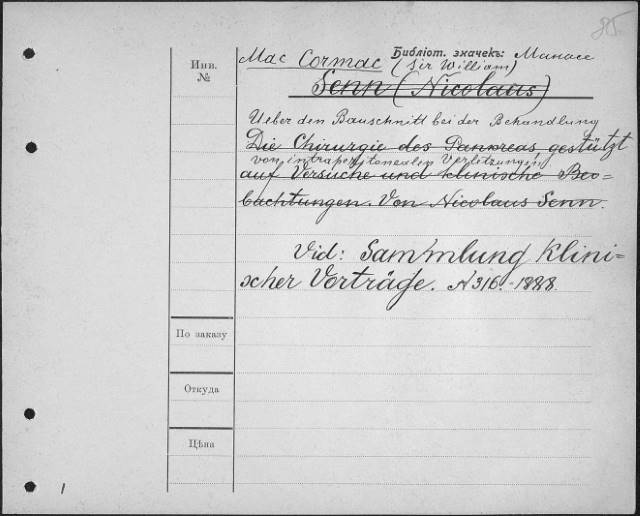 85.
Инв.
№
Mac Cormac
Библіот. значекъ:
(Sir William)
Senn (Nicolaus)
Ueber den Bauschnitt bei der Behandlung
Die Chirurgie des Pankreas gestützt
von intraperitonealen Verletzungen
auf Versuche und klinische Beo-
bachtungen. Von Nicolaus Senn.
Vid: Sammlung klini-
scher Vorträge. N 316.-1888.
По заказу
Откуда
Цѣна
1